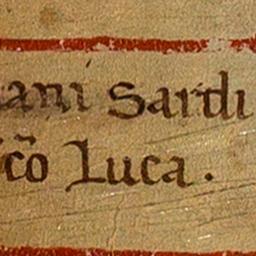 ani Sardi
cõ Luca.